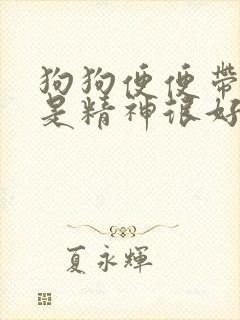 狗狗便便带
是精神很好
夏永輝